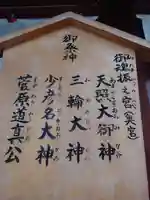 御祭神
御魂振之宮
天照大御神
三輪大神
少彦名大神
菅原道真公